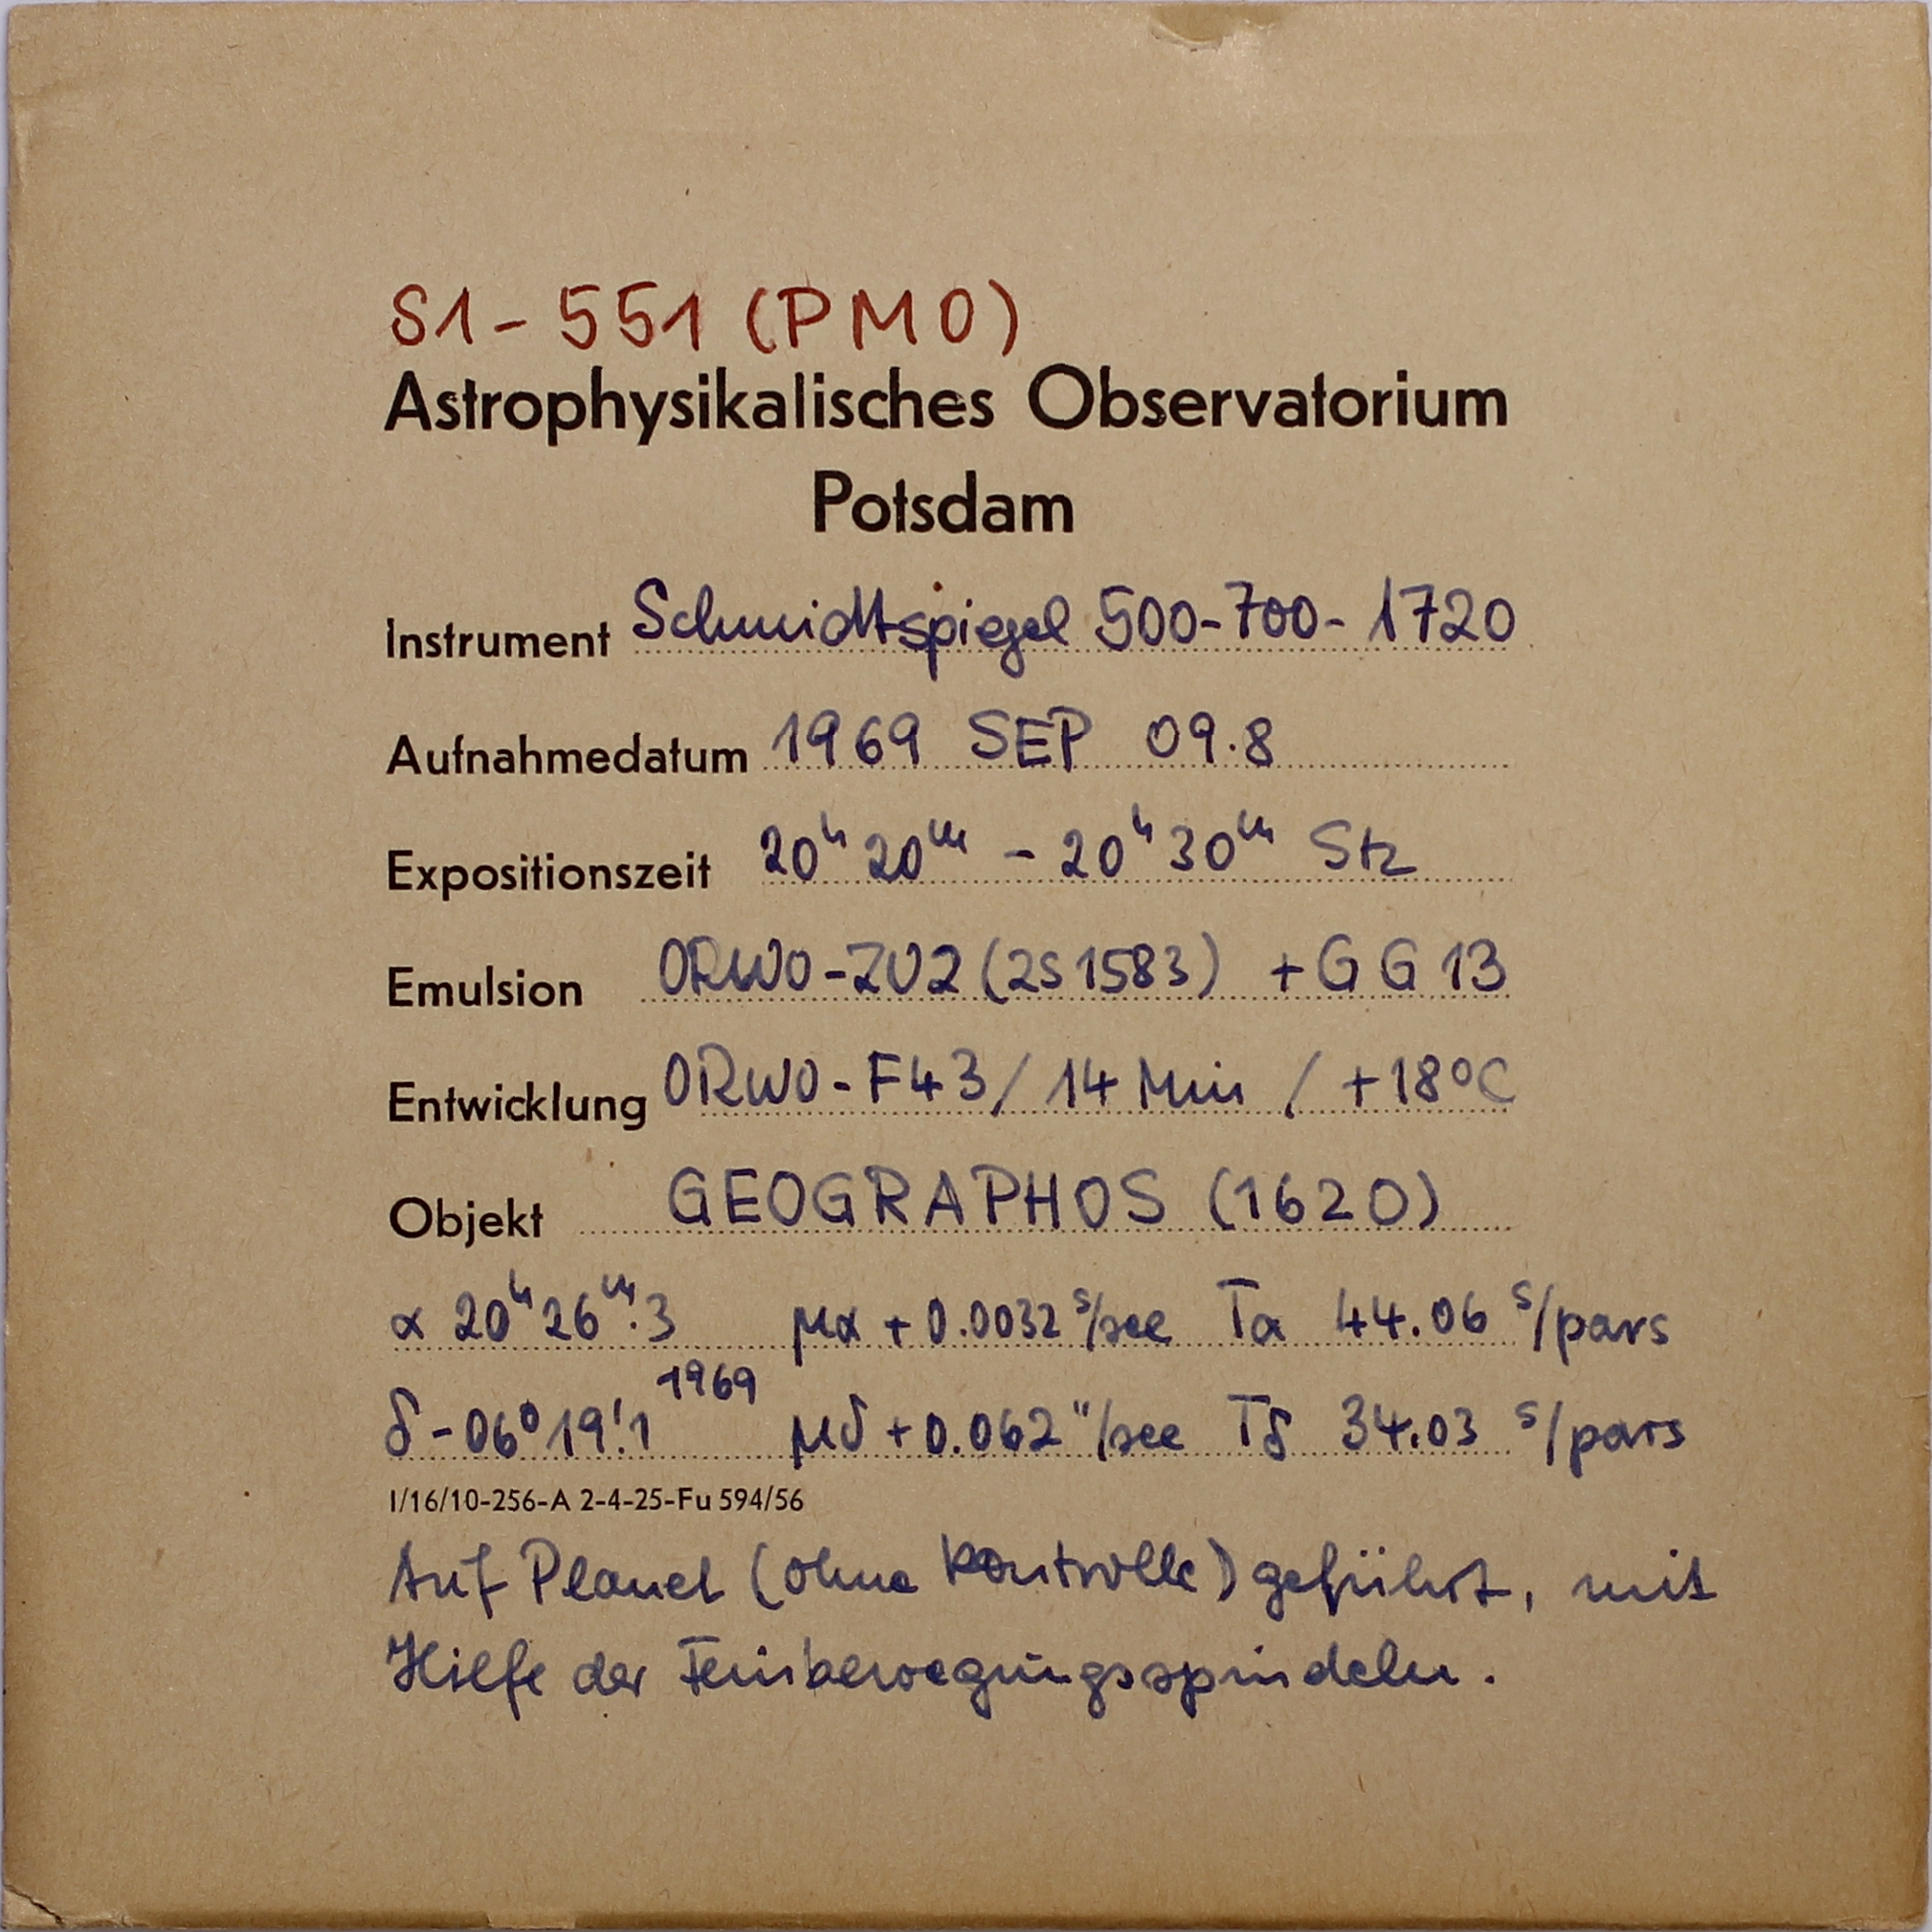 S1-551 (PMO)
Astrophysikalisches Observatorium
Potsdam
Instrument Schmidtspiegel 500-700-1720
Aufnahmedatum 1969 SEP 09.8
Expositionszeit 20ʰ20ᵐ - 20ʰ30ᵐ Stz
Emulsion ORWO-ZU2 (2S1583) +GG13
Entwicklung ORWO-F43/14 Min / +18°C
Objekt GEOGRAPHOS (1620)
α 20ʰ26ᵐ.3 μα + 0.0032 ˢ/sec Tα 44.06 ˢ/pars
δ -06°19!1 1969 μδ + 0.062 "/sec Tδ 34.03 ˢ/pars
I/16/10-256-A 2-4-25-Fu 594/56
Auf Planet (ohne Kontrolle) geführt, mit
Hilfe der Feinbewegungsspindeln.